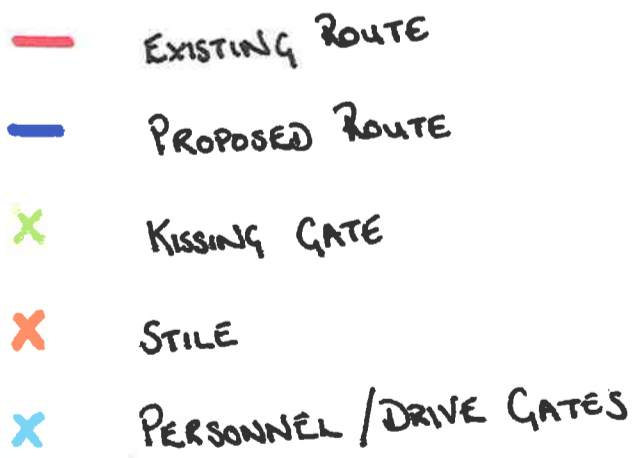 EXISTING ROUTE
PROPOSED ROUTE
KISSING GATE
STILE
PERSONNEL / DRIVE GATES